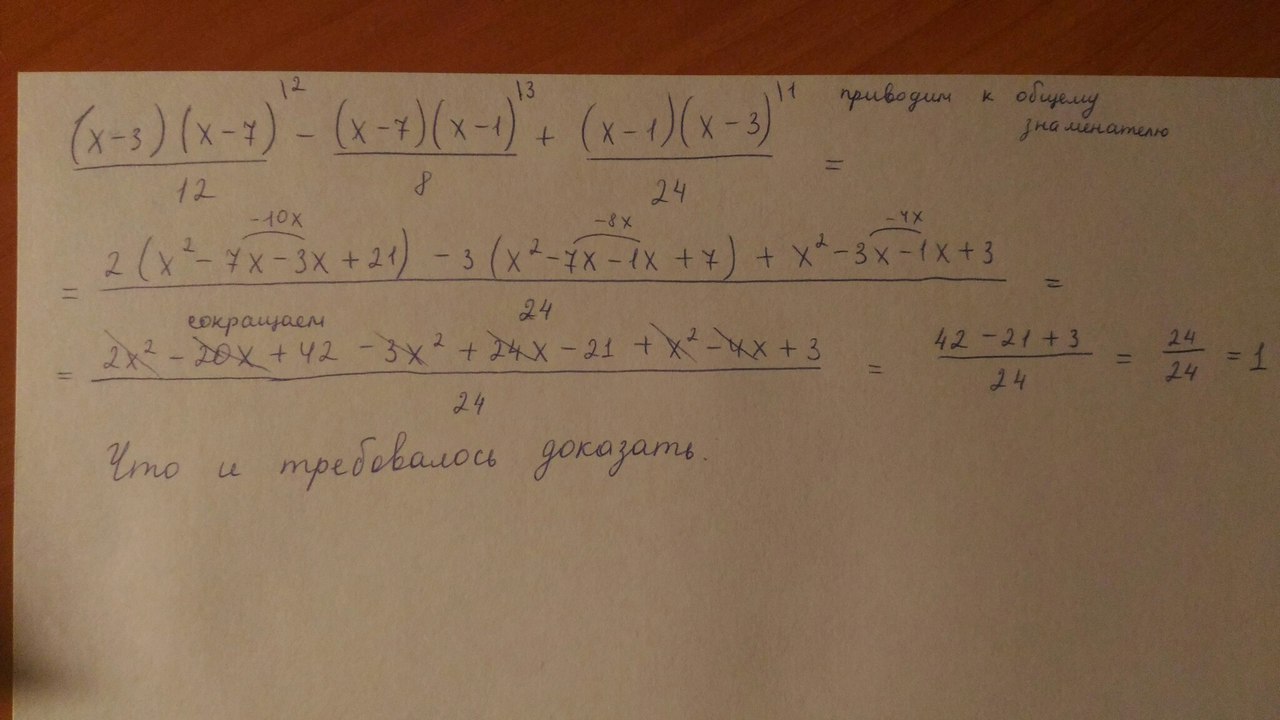 (x-3)(x-7)\2 / 12 - (x-7)(x-1)\3 / 8 + (x-1)(x-3)\1 / 24 = приводим к общему
знаменателю
-10x -8x -4x
= 2(x²-7x-3x+21) -3(x²-7x-1x+7) + x²-3x-1x+3 / 24 =
сокращаем
= 2x² -20x +42 -3x² +24x -21 + x² -4x +3 / 24 = 42-21+3 / 24 = 24 / 24 = 1
Что и требовалось доказать.